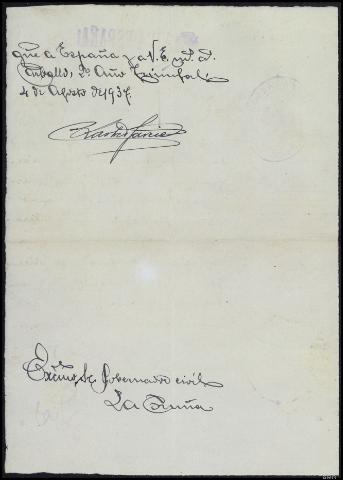 que a España y a V. E. m. a.
Carballo, 2º Año Triunfal
4 de Agosto de 1937.
Excmo. Sr. Gobernador civil
La Coruña